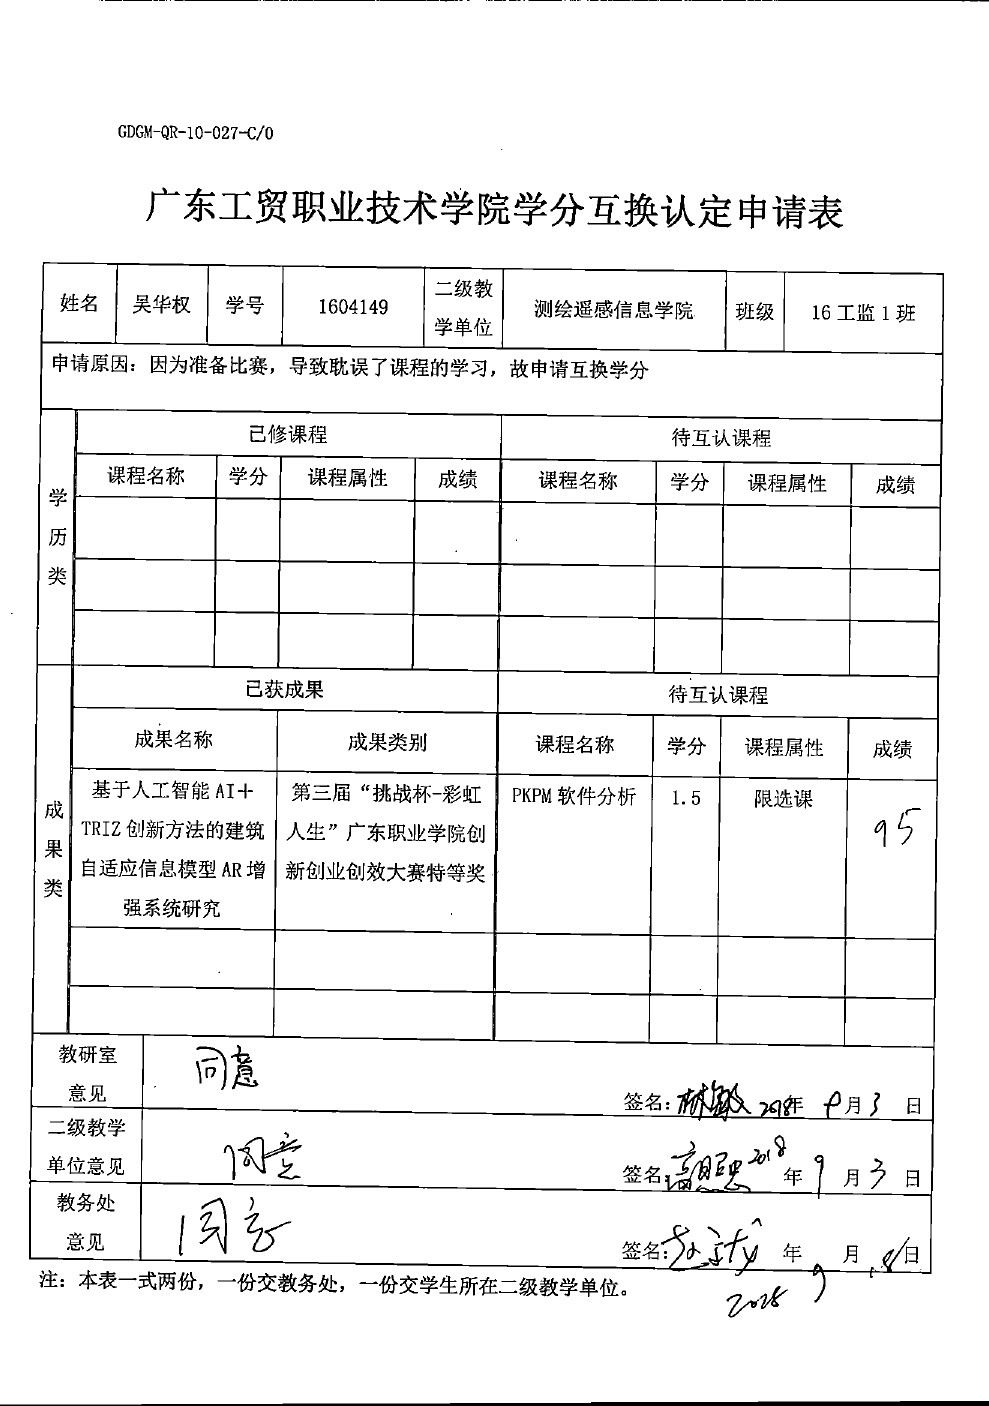 GDGM-QR-10-027-C/0
广东工贸职业技术学院学分互换认定申请表
姓名 吴华权 学号 1604149 二级教学单位 测绘遥感信息学院 班级 16工监1班
申请原因：因为准备比赛，导致耽误了课程的学习，故申请互换学分
学历类
已修课程 待互认课程
课程名称 学分 课程属性 成绩 课程名称 学分 课程属性 成绩
成果类
已获成果 待互认课程
成果名称 成果类别 课程名称 学分 课程属性 成绩
基于人工智能AI＋ 第三届“挑战杯-彩虹 PKPM软件分析 1.5 限选课 95
TRIZ创新方法的建筑 人生”广东职业学院创
自适应信息模型AR增 新创业创效大赛特等奖
强系统研究
教研室
意见
同意
签名：林敏 2018年 9月3日
二级教学
单位意见
同意
签名： 2018年9月3日
教务处
意见
同意
签名： 年 月 日
2018 9
注：本表一式两份，一份交教务处，一份交学生所在二级教学单位。